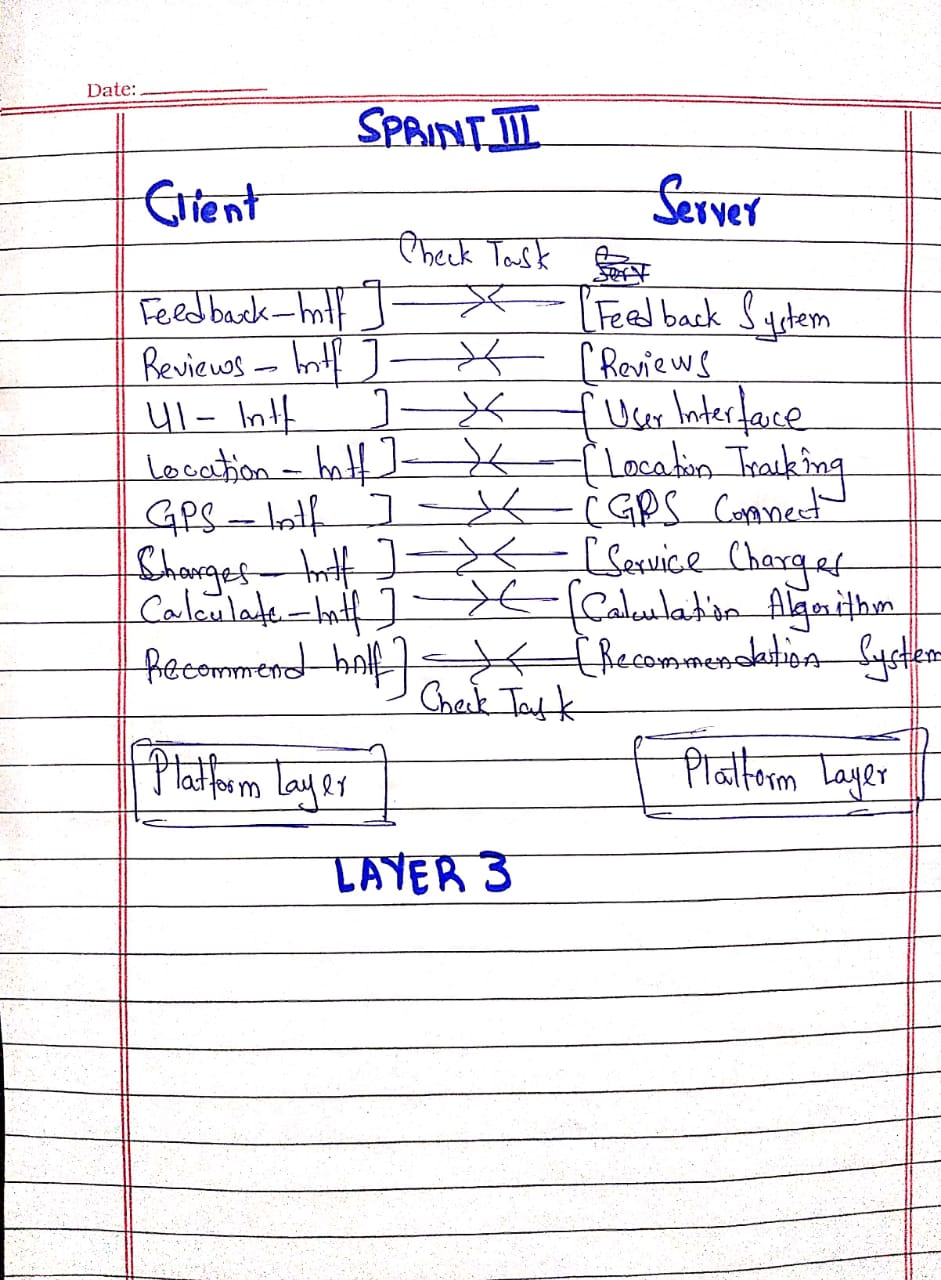 Date:
SPRINT III
Client Server
Check Task Serv
Feedback-Intf] [Feedback System
Reviews - Intf] [Reviews
UI - Intf ] [User Interface
Location - Intf] [Location Tracking
GPS - Intf ] [GPS Connect
Charges - Intf ] [Service Charges
Calculate - Intf ] [Calculation Algorithm
Recommend Intf] [Recommendation System
Check Task
Platform Layer Platform Layer
LAYER 3